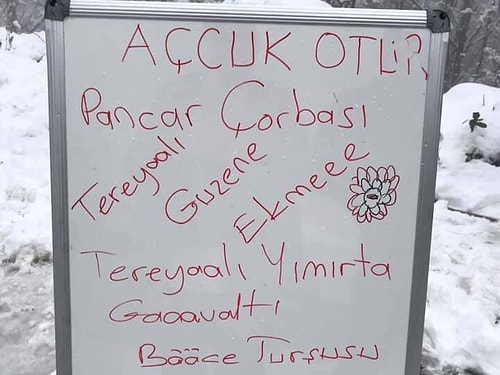 AÇCUK OTLİR
Pancar Çorbası
Tereyaalı
Guzene
Ekmeee
Tereyaalı Yımırta
Gaaavaltı
Bääce Turşusu